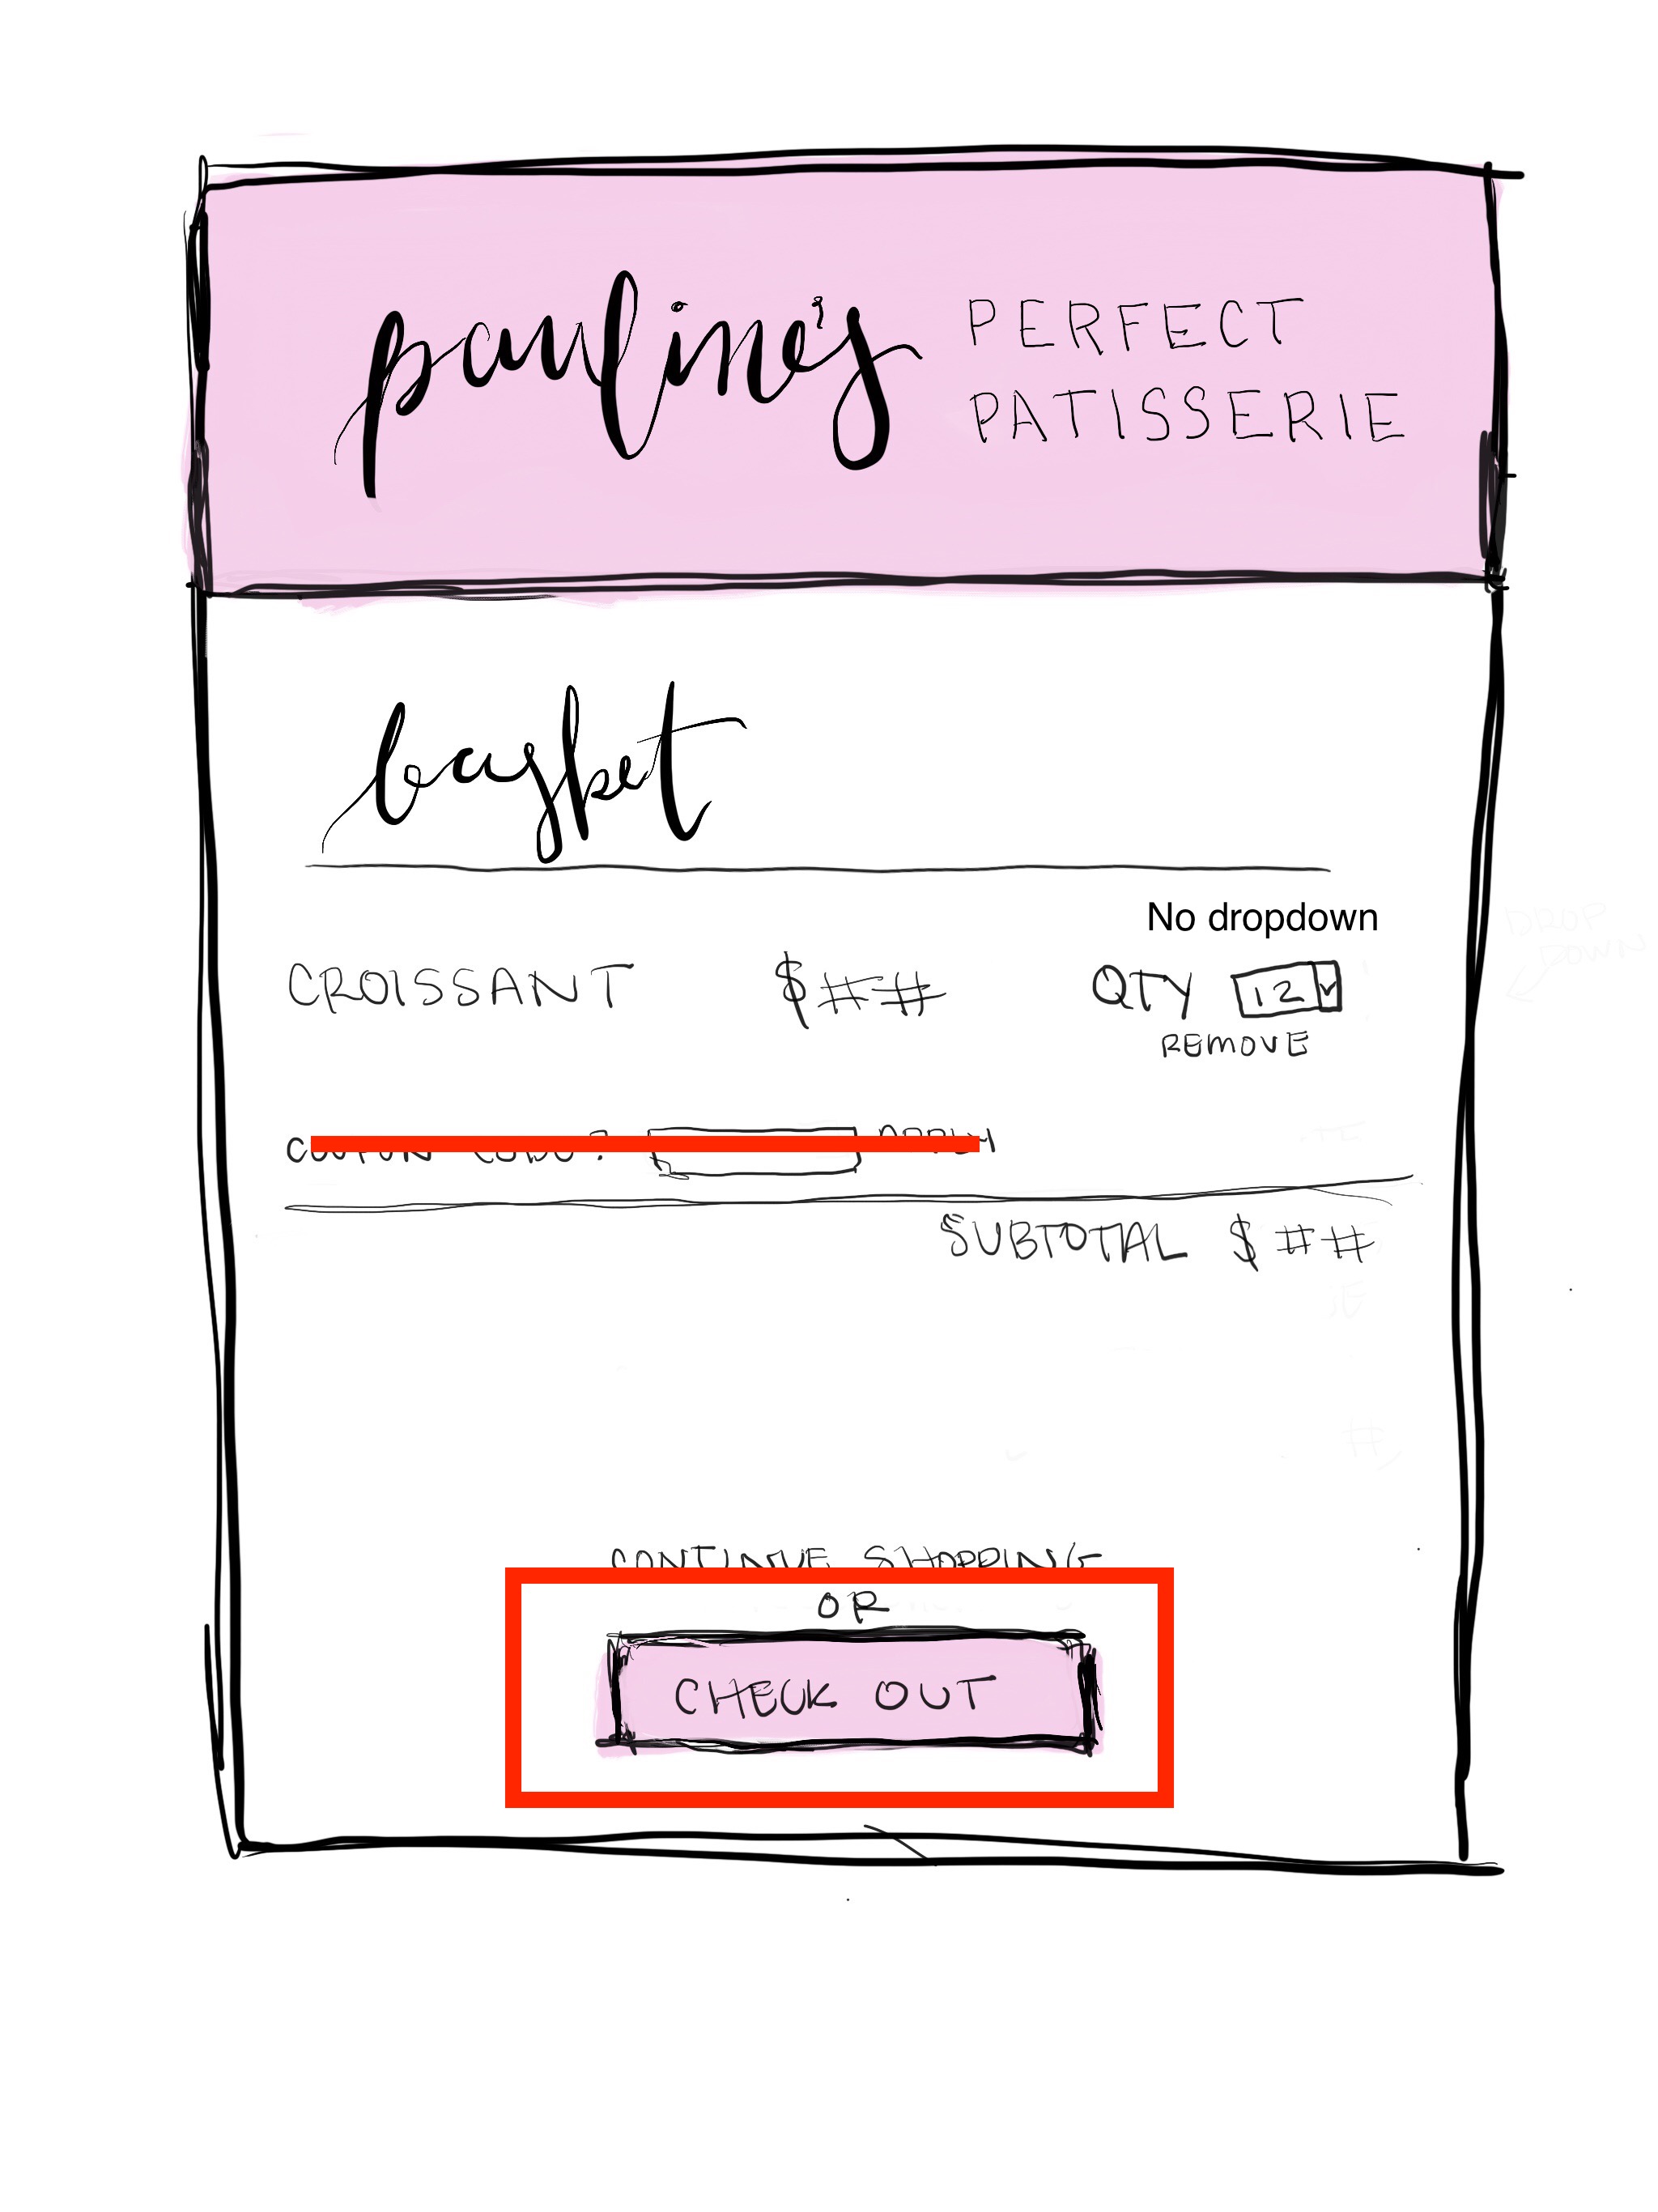 pauline's PERFECT
PATISSERIE
basket
No dropdown
CROISSANT $## QTY 12
REMOVE
COUPON CODE? APPLY
SUBTOTAL $##
CONTINUE SHOPPING
OR
CHECK OUT
DROP
DOWN